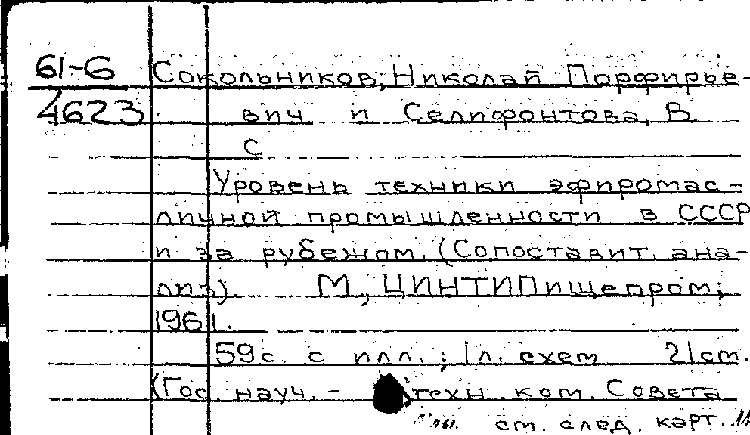 61-6 Сокольников, Николай Порфирье-
4623 вич и Селифонтова, В.
С
Уровень техники эфиромас-
личной промышленности в СССР
и за рубежом. (Сопоставит. ана-
лиз). М., ЦИНТИПищепром,
1961.
59 с. с илл.; 1 л. схем 21 см.
(Гос. науч.- техн. ком. Совета
см. след. карт.